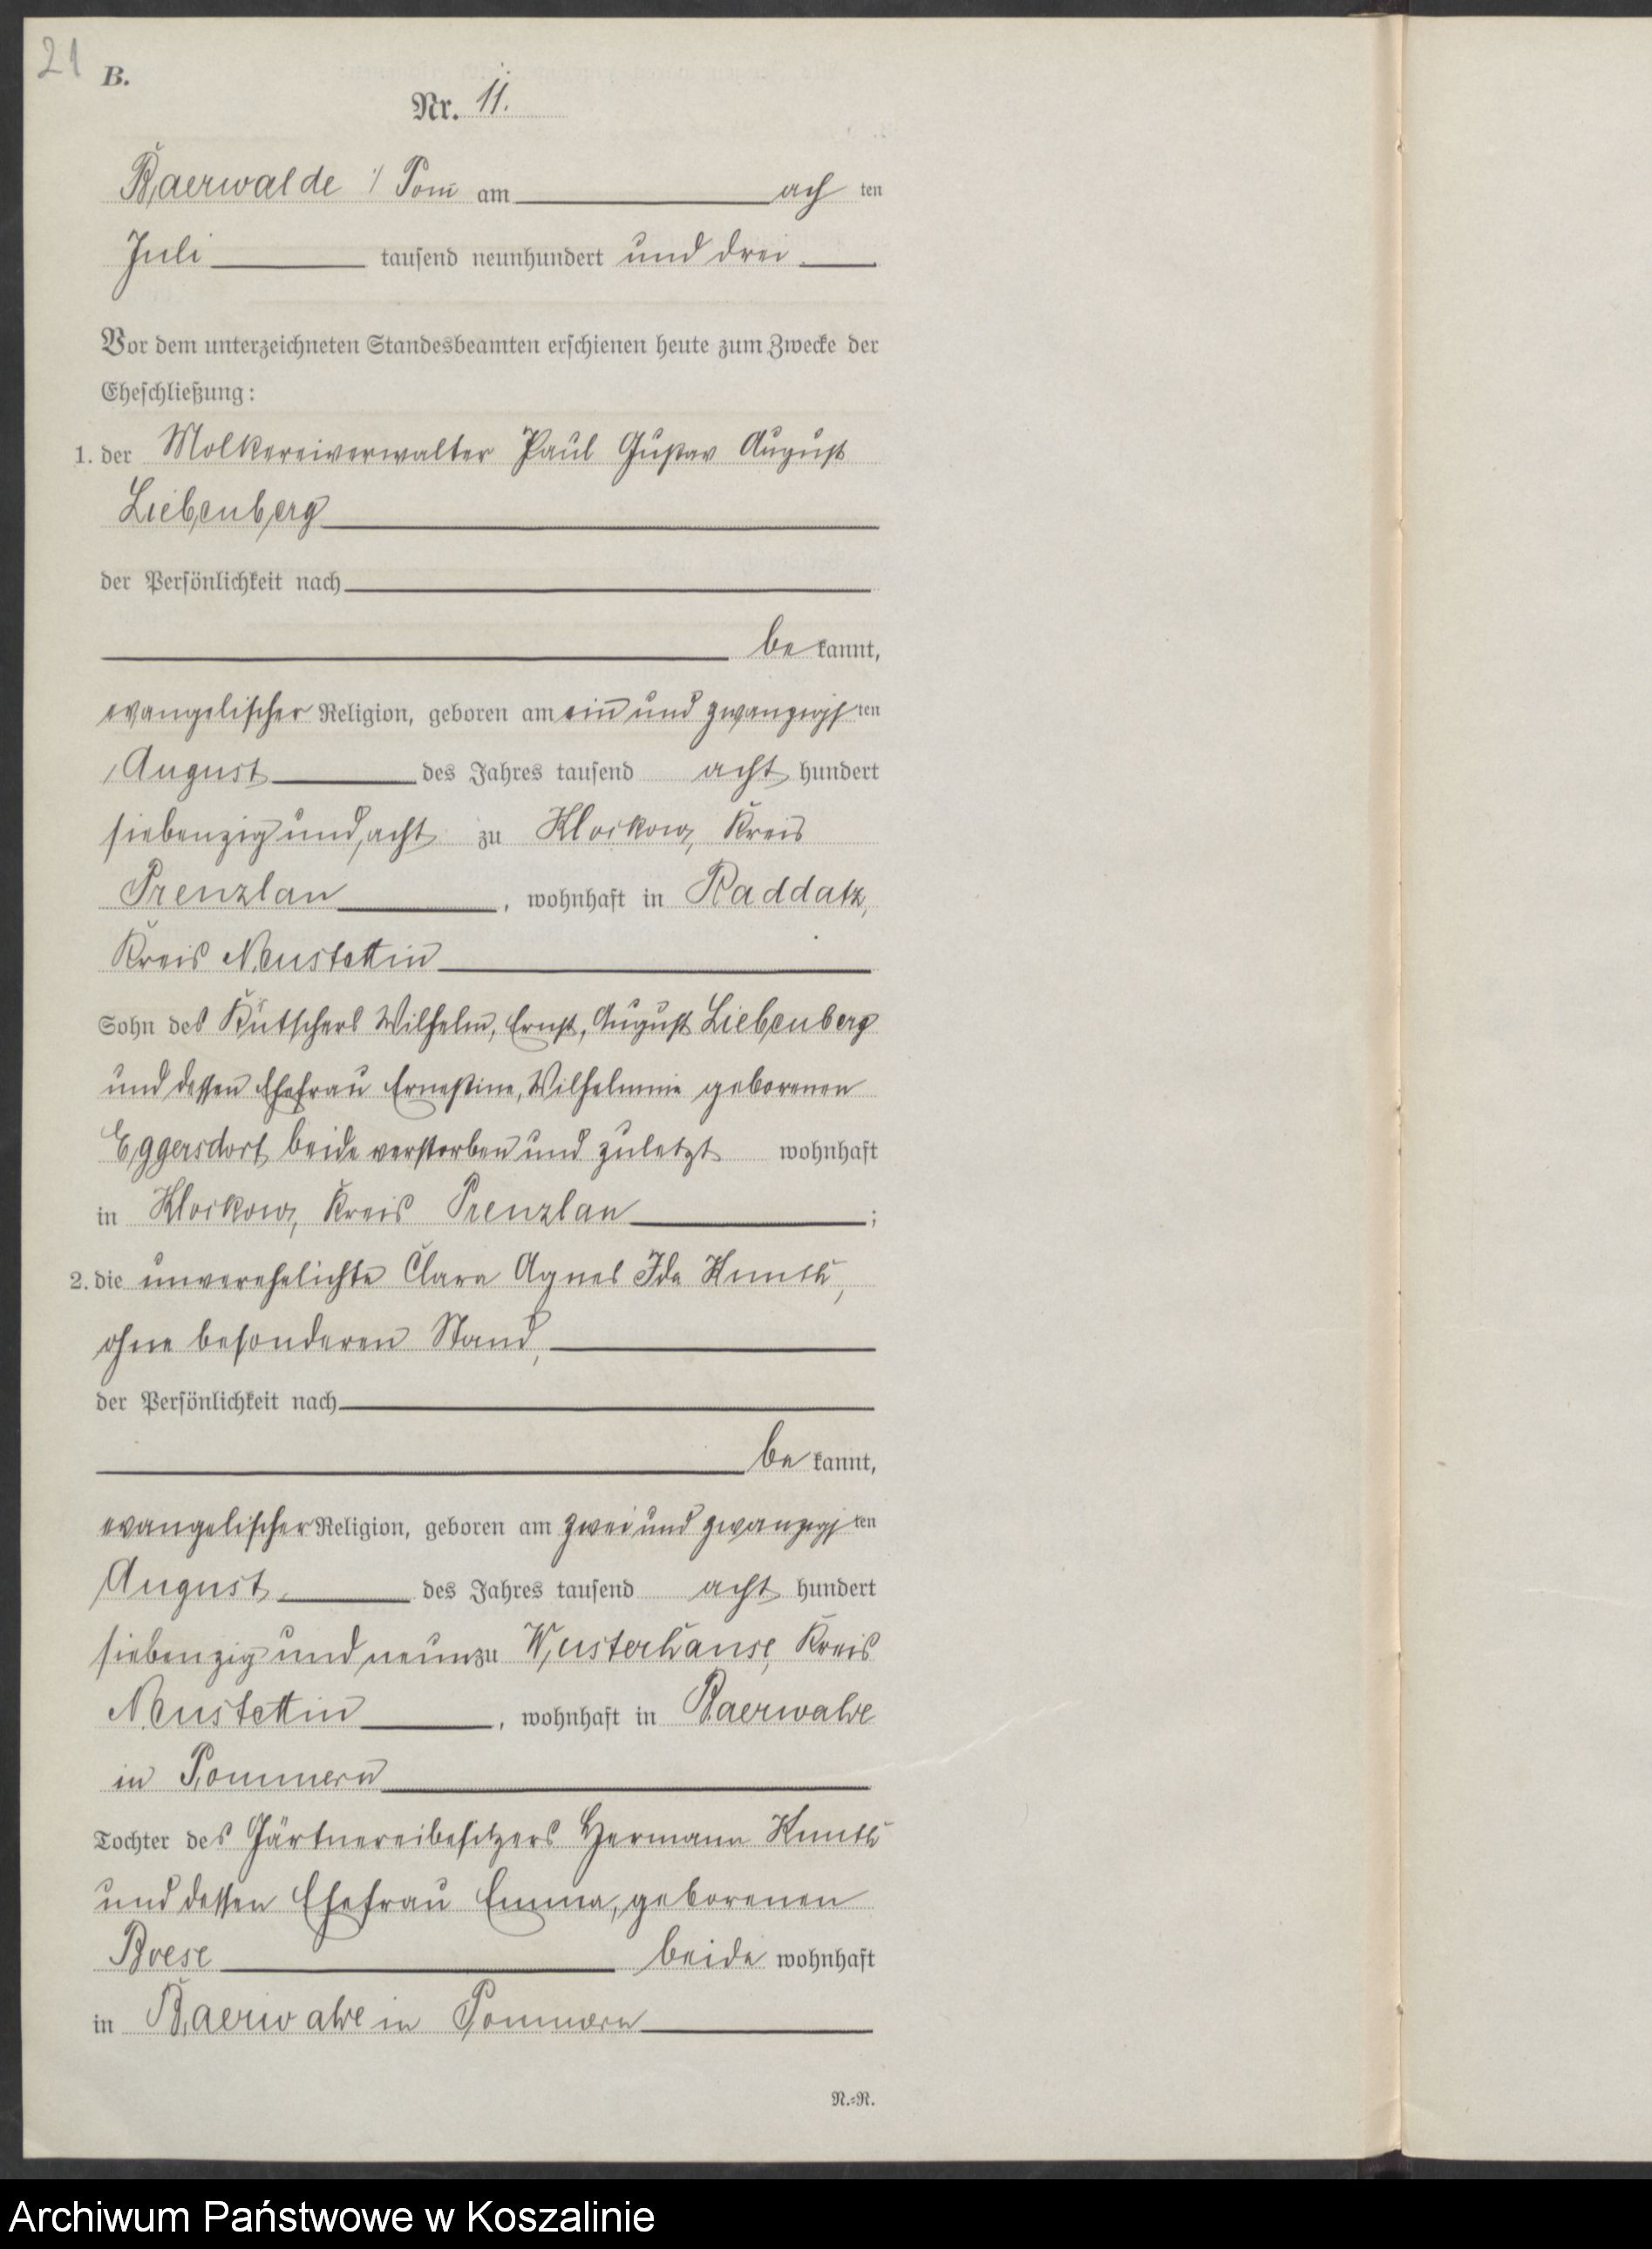 21
B.
Nr. 11.
Baerwalde i/ Pom̄ am ach ten
Juli tausend neunhundert und drei
Vor dem unterzeichneten Standesbeamten erschienen heute zum Zwecke der
Eheschließung:
1. der Molkereiverwalter Paul Gustav August
Liebenberg
der Persönlichkeit nach
be kannt,
evangelischer Religion, geboren am ein und zwanzigs ten
August des Jahres tausend acht hundert
siebenzig und acht zu Klockow, Kreis
Prenzlau, wohnhaft in Raddatz,
Kreis Neustettin
Sohn des Kutschers Wilhelm, Ernst, August Liebenberg
und dessen Ehefrau Ernestine, Wilhelmine geborenen
Eggersdorf, beide verstorben und zuletzt wohnhaft
in Klockow, Kreis Prenzlau;
2. die unverehelichte Clara Agnes Ida Kunth,
ohne besonderen Stand,
der Persönlichkeit nach
be kannt,
evangelischer Religion, geboren am zwei und zwanzigs ten
August des Jahres tausend acht hundert
siebenzig und neun zu Wusterhanse, Kreis
Neustettin, wohnhaft in Baerwalde
in Pommern
Tochter des Gärtnereibesitzers Hermann Kunth
und dessen Ehefrau Emma, geborenen
Boese beide wohnhaft
in Baerwalde in Pommern
N.-R.
Archiwum Państwowe w Koszalinie